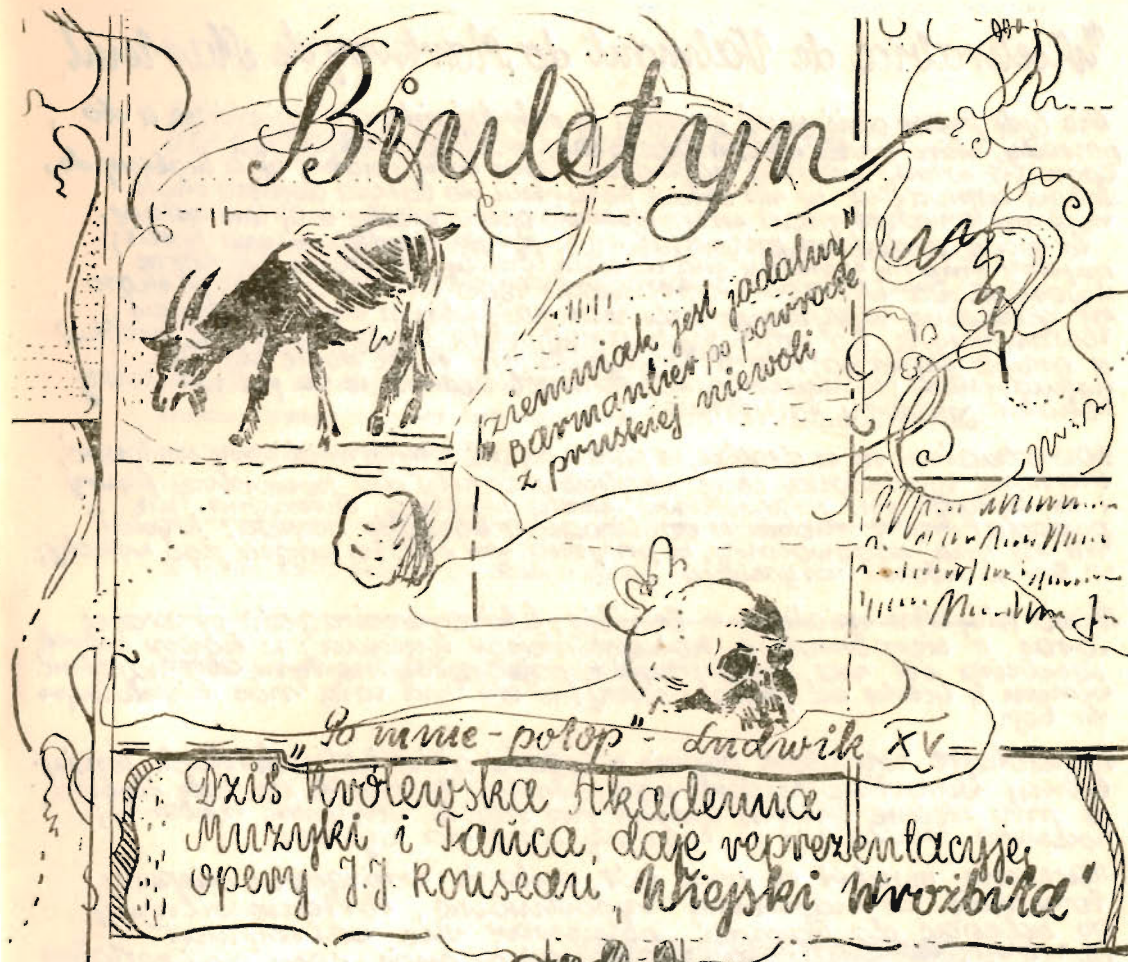 Biuletyn
"ziemniak jest jadalny"
Barmantier po powrocie
z pruskiej niewoli
"Po mnie - potop" - Ludwik XV
Dziś Królewska Akademia
Muzyki i Tańca, daje reprezentacyję
opery J.J. Rouseau "Wiejski Wróżbita"